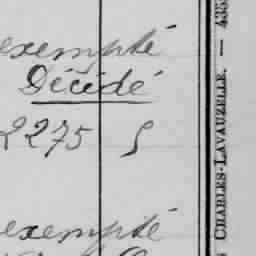 exempté
Décédé
2275 S
exempté
CHARLES-LAVAUZELLE. — 435